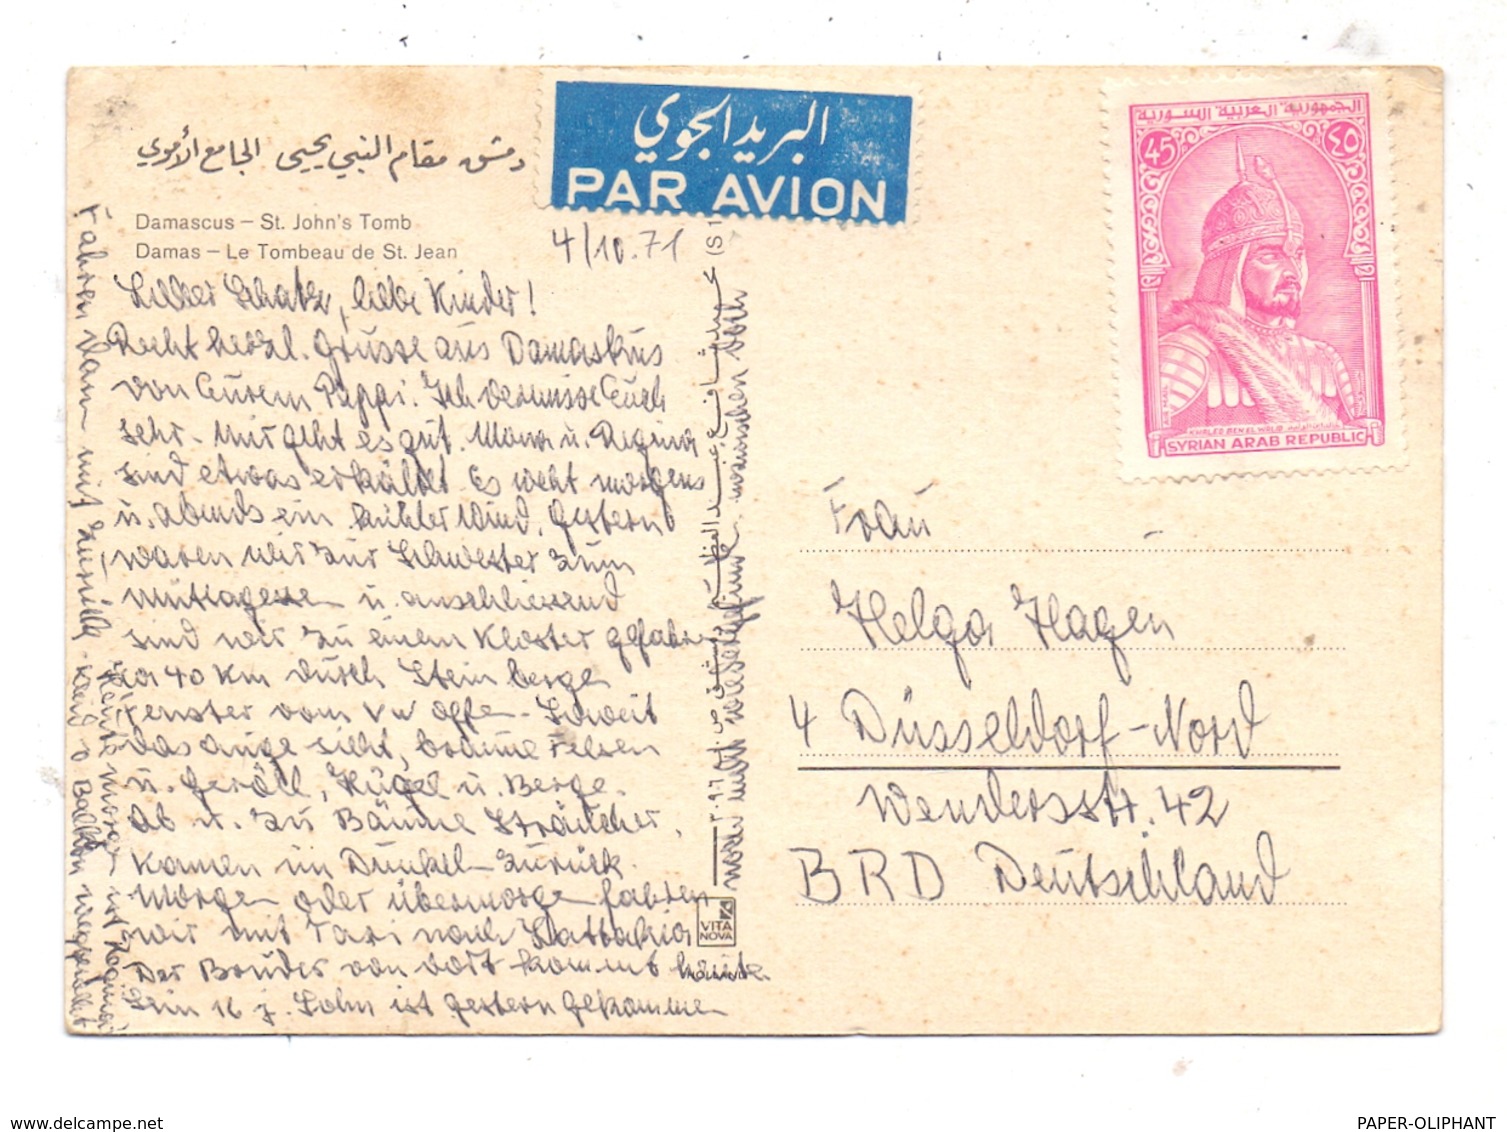 دمشق مقام النبي يحيى الجامع الأموي
Damascus – St. John's Tomb
Damas – Le Tombeau de St. Jean
البريد الجوي
PAR AVION
4/10.71
الجمهورية العربية السورية
45
٤٥
AIR MAIL
KHALED BEN EL WALID
SYRIAN ARAB REPUBLIC
Lieber Schatz, liebe Kinder!
Recht herzl. Grüsse aus Damaskus
von Eurem Pappi. Ich vermisse Euch
sehr. Mir geht es gut. Mona u. Regina
sind etwas erkältet. Es weht morgens
u. abends ein kühler Wind. Gestern
waren wir zur Schwester zum
Mittagessen u. anschliessend
sind wir zu einem Kloster gefahren
ca 40 km durch Steinberge
Fenster vom VW offen. Soweit
das Auge sieht, braune Felsen
u. Geröll, Hügel u. Berge.
Ab u. zu Bäume Sträucher.
Kamen im Dunkeln zurück.
Morgen oder übermorgen fahren
wir mit Taxi nach Lattakia
Der Bruder von dort kommt heute
Sein 16 j. Sohn ist gestern gekommen
Fahren dann mit zurück
Heute Morgen ist Regina
v Balkon
VITA NOVA
HOLLAND
٢٠٩٦
Frau
Helga Hagen
4 Düsseldorf-Nord
Wendersstr. 42
BRD Deutschland
delcampe.net
PAPER-OLIPHANT